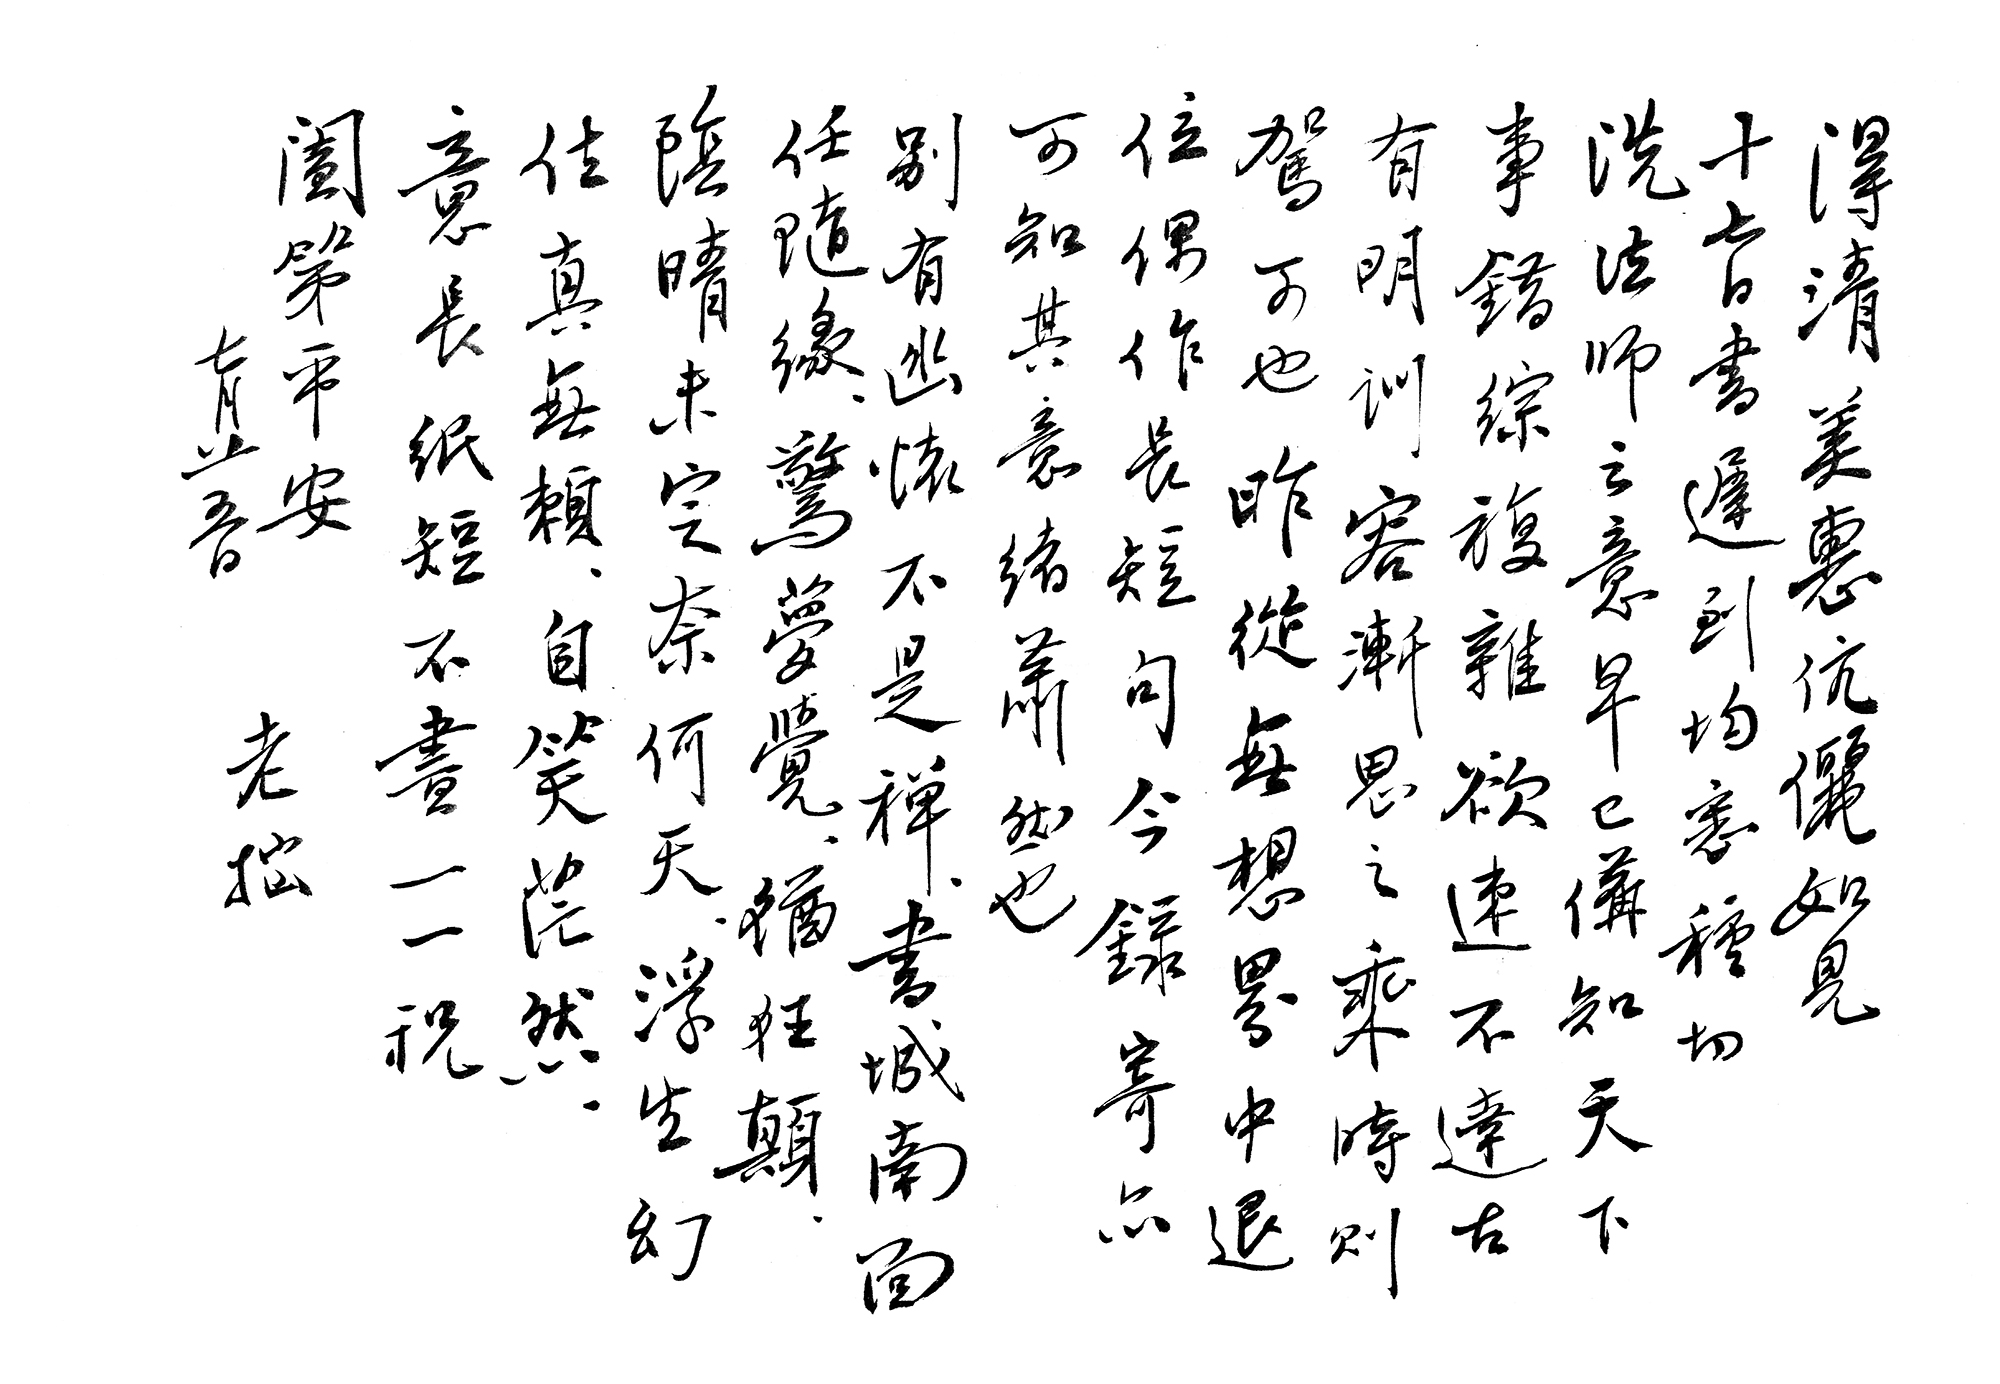 淂清美惠伉儷如見
十七日書遲到均悉種切
洗法師之意早已備知天下
事錯綜複雜欲速不達古
有明訓容漸思之乘時則
駕可可也昨從無想畧中退
位偶作長短句今錄寄亦
可知其意緒蕭然也
別有幽懷不是禪、書城南面
任隨緣、驚夢覺、猶狂顛、
陰晴未定奈何天、浮生幻
住真無賴、自笑茫然、
意長紙短不盡一一祝
闔第平安
七月廿五日
老拙